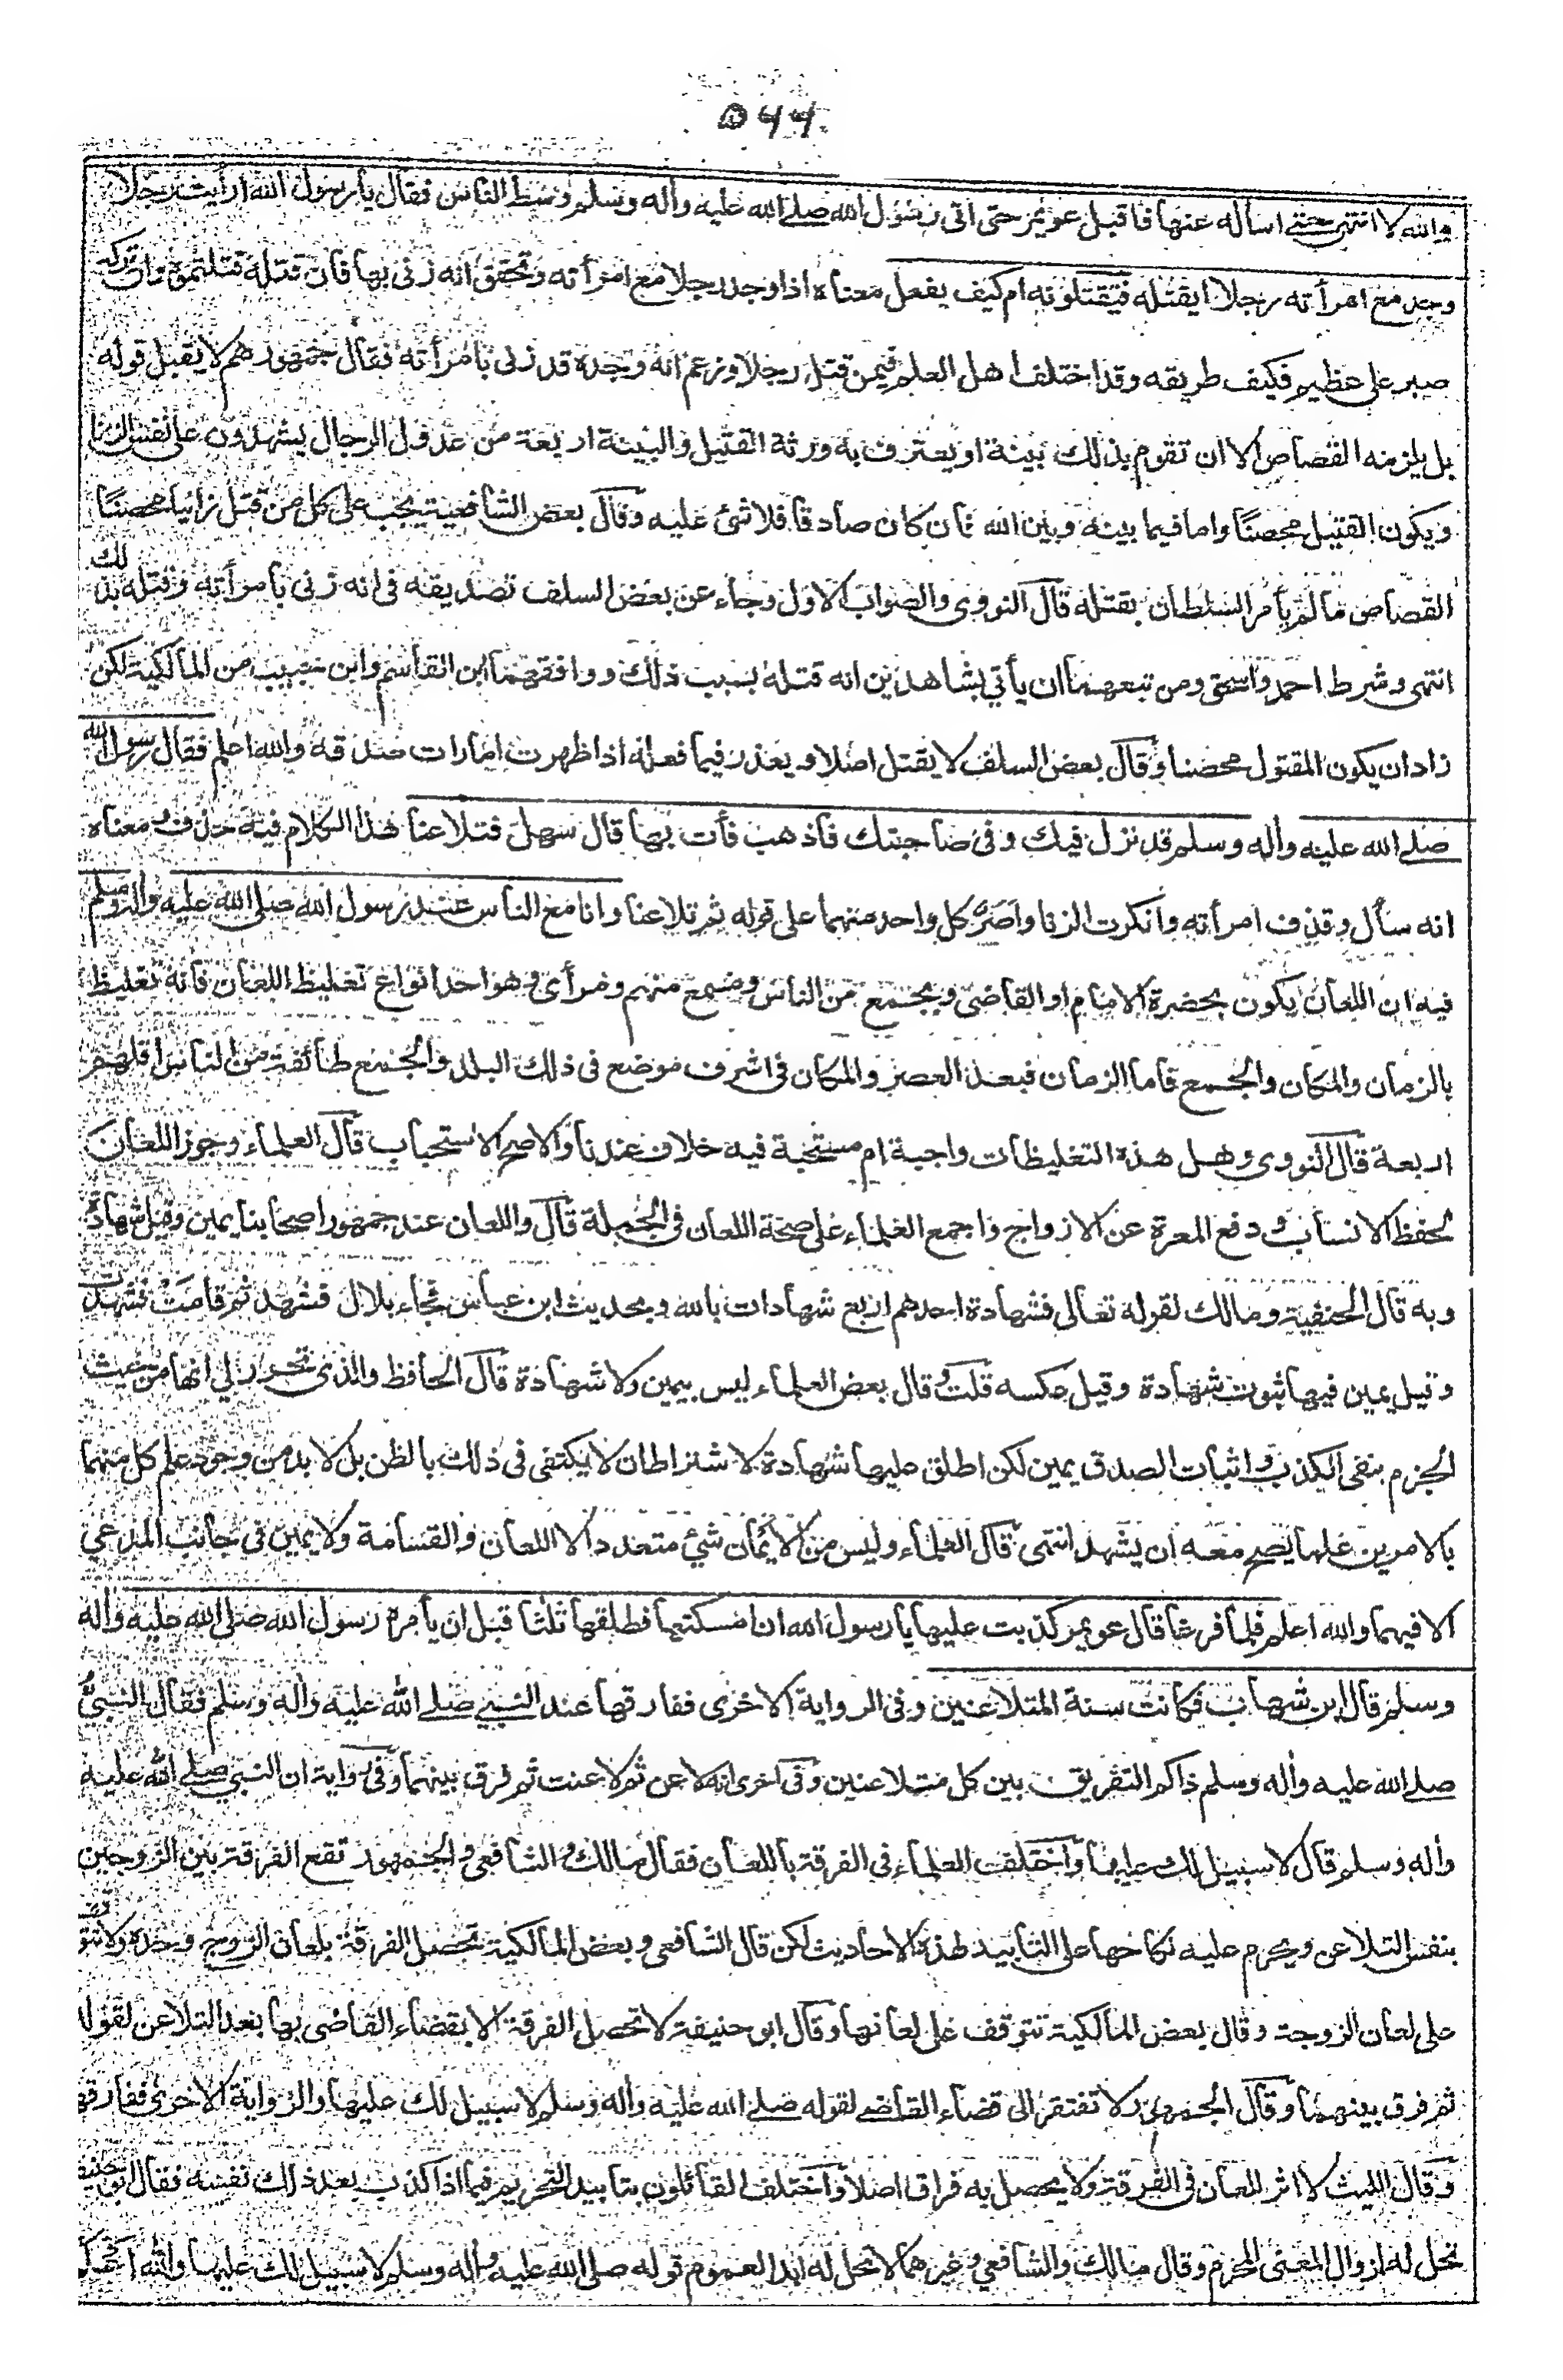 ٥٦٦
والله لا انتهى حتى اسأله عنها فاقبل عويمر حتى اتى رسول الله صلى الله عليه وأله وسلم وسط الناس فقال يا رسول الله ارأيت رجلا
وجد مع امرأته رجلا ايقتله فيقتلونه ام كيف يفعل معناه اذا وجد رجلا مع امرأته وتحقق انه زنى بها فان قتله قتلتموه وان تركه
صبر على عظيم فكيف طريقه وقد اختلف اهل العلم فيمن قتل رجلا وزعم انه وجده قد زنى بامرأته فقال جمهورهم لا يقبل قوله
بل يلزمه القصاص الا ان تقوم بذلك بينة او يعترف به ورثة القتيل والبينة اربعة من عدول الرجال يشهدون على نفس الزنا
ويكون القتيل محصنًا واما فيما بينه وبين الله فان كان صادقا فلا شئ عليه وقال بعض الشافعية يجب على كل من قتل زانيا محصنًا
القصاص ما لم يأمر السلطان بقتله قال النووى والصواب الاول وجاء عن بعض السلف تصديقه فى انه زنى بامرأته وقتله بذلك
انتهى وشرط احمد واسحق ومن تبعهما ان يأتي بشاهدين انه قتله بسبب ذلك ووافقهما ابن القاسم وابن حبيب من المالكية لكن
زاد ان يكون المقتول محصنا وقال بعض السلف لا يقتل اصلا ويعذر فيما فعله اذا ظهرت امارات صدقه والله اعلم فقال رسول الله
صلے الله عليه وأله وسلم قد نزل فيك وفى صاحبتك فاذهب فأت بها قال سهل فتلاعنا هذا الكلام فيه حذف ومعناه
انه سأل وقذف امرأته وانكرت الزنا واصر كل واحد منهما على قوله ثم تلاعنا وانا مع الناس عند رسول الله صلى الله عليه وأله وسلم
فيه ان اللعان يكون بحضرة الامام او القاضى وبجمع من الناس وبمسمع منهم ومرأى وهو احد انواع تغليظ اللعان فانه تغليظ
بالزمان والمكان والجمع فاما الزمان فبعد العصر والمكان فى اشرف موضع فى ذلك البلد والجمع طائفة من الناس اقلهم
اربعة قال النووى وهل هذه التغليظات واجبة ام مستحبة فيه خلاف عندنا والاصح الاستحباب قال العلماء وجوز اللعان
لحفظ الانساب ودفع المعرة عن الازواج واجمع العلماء على صحة اللعان فى الجملة قال واللعان عند جمهور اصحابنا يمين وقيل شهادة
وبه قال الحنفية ومالك لقوله تعالى فشهادة احدهم اربع شهادات بالله وبحديث ابن عباس فجاء بلال فشهد ثم قامت فشهدت
وقيل يمين فيها ثبوت شهادة وقيل عكسه قلت وقال بعض العلماء ليس بيمين ولا شهادة قال الحافظ والذى تحرر لي انها من حيث
الجزم بنفى الكذب واثبات الصدق يمين لكن اطلق عليها شهادة لاشتراط ان لا يكتفى فى ذلك بالظن بل لا بد من وجود علم كل منهما
بالامرين علما يصح معه ان يشهد انتهى قال العلماء وليس من الايمان شئ متعدد الا اللعان والقسامة ولا يمين فى جانب المدعي
الا فيهما والله اعلم فلما فرغا قال عويمر كذبت عليها يا رسول الله ان امسكتها فطلقها ثلثا قبل ان يأمره رسول الله صلى الله عليه وأله
وسلم قال ابن شهاب فكانت سنة المتلاعنين وفى الرواية الاخرى ففارقها عند النبي صلے الله عليه وأله وسلم فقال النبي
صلے الله عليه وأله وسلم ذاكم التفريق بين كل متلاعنين وفى اخرى انه لاعن ثم لاعنت ثم فرق بينهما وفى رواية ان النبي صلے الله عليه
وأله وسلم قال لا سبيل لك عليها واختلف العلماء فى الفرقة باللعان فقال مالك والشافعى والجمهور تقع الفرقة بين الزوجين
بنفس التلاعن ويحرم عليه نكاحها على التأبيد لهذه الاحاديث لكن قال الشافعى وبعض المالكية تحصل الفرقة بلعان الزوج وحده ولا تتوقف
على لعان الزوجة وقال بعض المالكية تتوقف على لعانها وقال ابو حنيفة لا تحصل الفرقة الا بقضاء القاضى بها بعد التلاعن لقوله
ثم فرق بينهما وقال الجمهور لا تفتقر الى قضاء القاضے لقوله صلے الله عليه وأله وسلم لا سبيل لك عليها والرواية الاخرى ففارقها
وقال الليث لا اثر للعان فى الفرقة ولا يحصل به فراق اصلا واختلف القائلون بتأبيد التحريم فيما اذا اكذب بعد ذلك نفسه فقال ابو حنيفة
تحل له لزوال المعنى المحرم وقال مالك والشافعي وغيرهما لا تحل له ابدا لعموم قوله صلى الله عليه وأله وسلم لا سبيل لك عليها والله اعلم